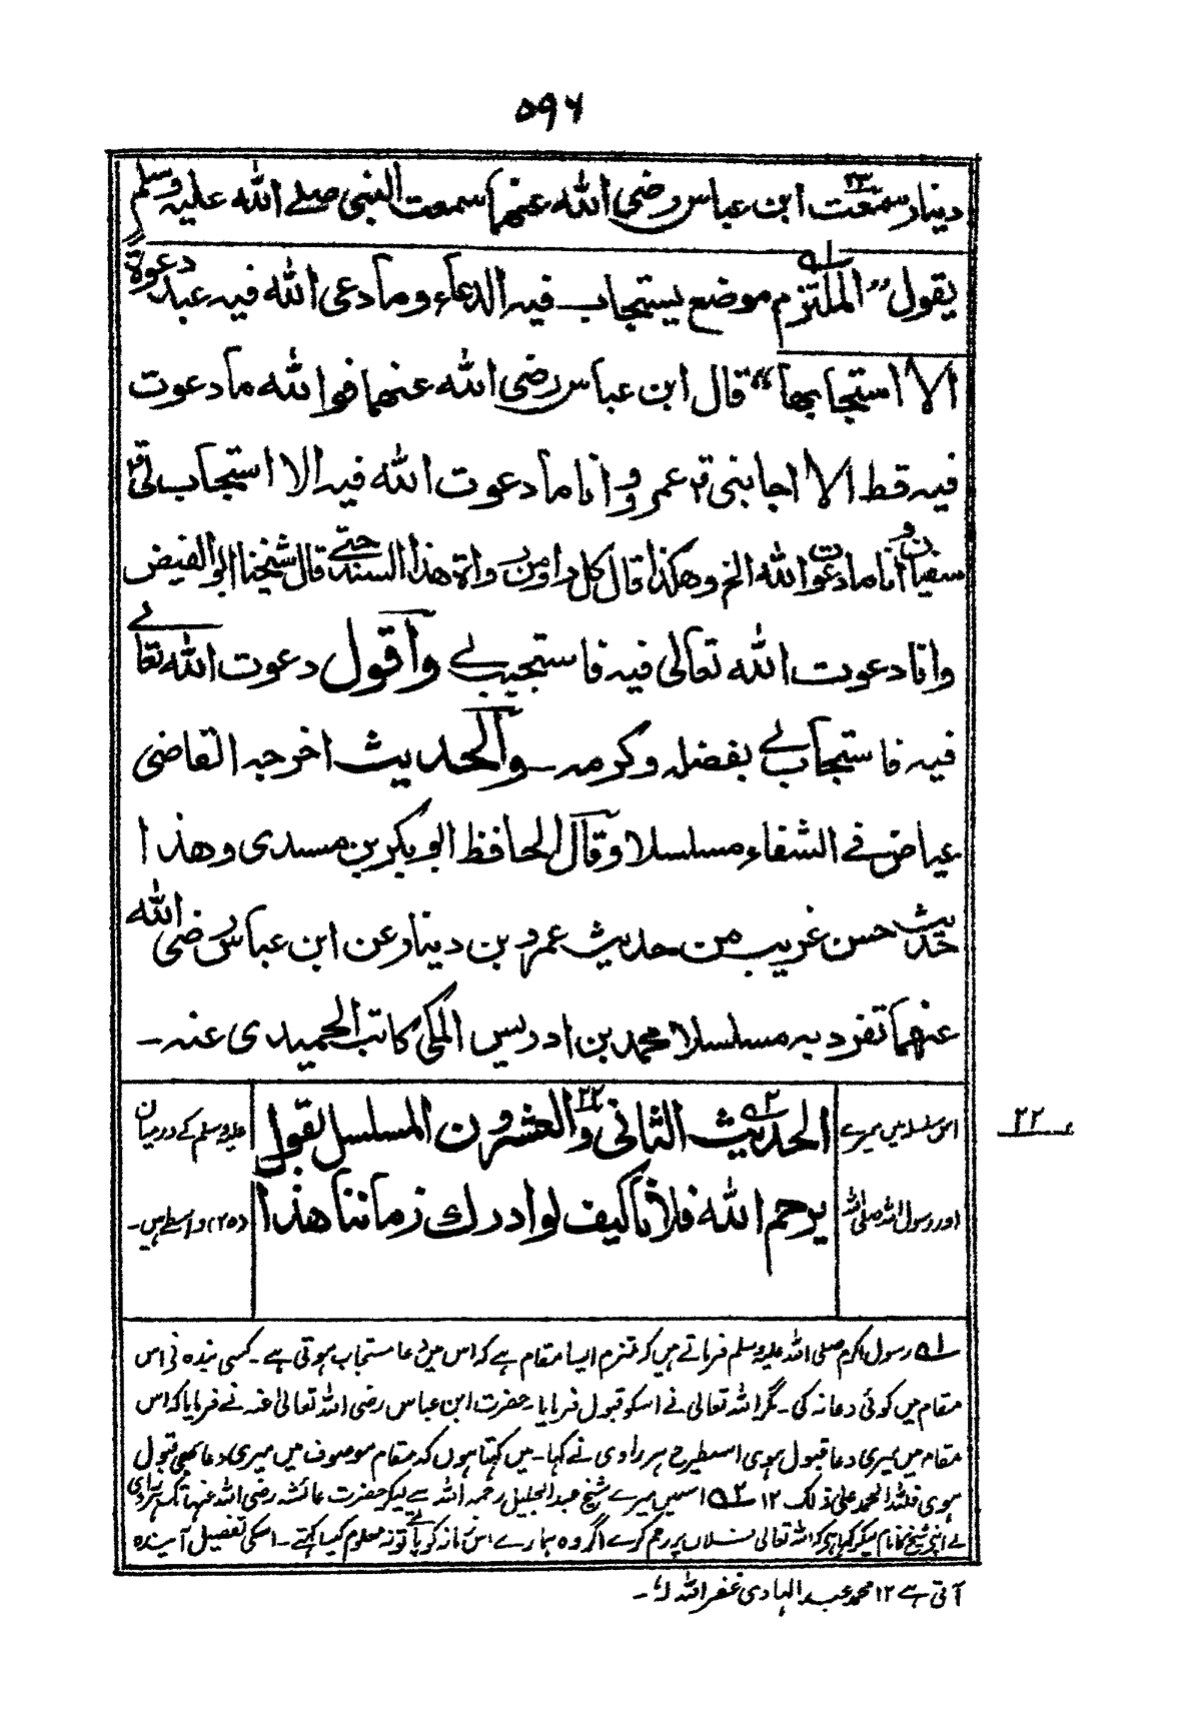 ۵۹۶
دینار سمعت ابن عباس رضی الله عنهما سمعت النبی صلے الله علیہ وسلم
یقول ”الملتزم موضع یستجاب فیہ الدعاء وما دعی الله فیہ عبد دعوة
الا استجابها“ قال ابن عباس رضی الله عنهما فوالله ما دعوت
فیہ قط الا اجابنی قال عمرو وانا ما دعوت الله فیہ الا استجاب لی قال
سفیان وانا ما دعوت الله الخ وهکذا قال کل راو من رواة هذا السند حتے قال شیخنا ابو الفیض
وانا دعوت الله تعالی فیہ فاستجیب لے واقول دعوت الله تعالے
فیہ فاستجاب لے بفضلہ وکرمہ۔ والحدیث اخرجہ القاضی
عیاض فے الشفاء مسلسلا وقال الحافظ ابو بکر بن مسدی وهذا
حدیث حسن غریب من حدیث عمرو بن دینار عن ابن عباس رضی الله
عنهما تفرد بہ مسلسلا محمد بن ادریس المکی کاتب الحمیدی عنہ۔
الحدیث الثانی والعشرون المسلسل بقول
یرحم الله فلانا کیف لو ادرك زماننا هذا
اس سلسلہ میں میرے
اور رسول اللہ صلی اللہ
علیہ وسلم کے درمیان
(۲۵) واسطے ہیں۔
۲۲
۱؎ رسول اکرم صلی اللہ علیہ وسلم فرماتے ہیں کہ ملتزم ایسا مقام ہے کہ اس میں دعا مستجاب ہوتی ہے۔ کسی بندہ نے اس
مقام میں کوئی دعا نہ کی۔ مگر اللہ تعالی نے اسکو قبول فرمایا۔ حضرت ابن عباس رضی اللہ تعالیٰ عنہ نے فرمایا کہ اس
مقام میں میری دعا قبول ہوی اسیطرح ہر راوی نے کہا۔ میں کہتا ہوں کہ مقام موصوف میں میری دعا بھی قبول
ہوی فللہ الحمد علی ذلک ۱۲ ۲؎ اسمیں میرے شیخ عبد الجلیل رحمہ اللہ سے لیکر حضرت عائشہ رضی اللہ عنہا تک ہر راوی
نے اپنے شیخ کا نام لیکر کہا ہیکہ اللہ تعالی فلاں پر رحم کرے اگر وہ ہمارے اس زمانہ کو پاتے تو نہ معلوم کیا کہتے۔ اسکی تفصیل آیندہ
آتی ہے ۱۲ محمد عبد الہادی غفر اللہ لہ۔